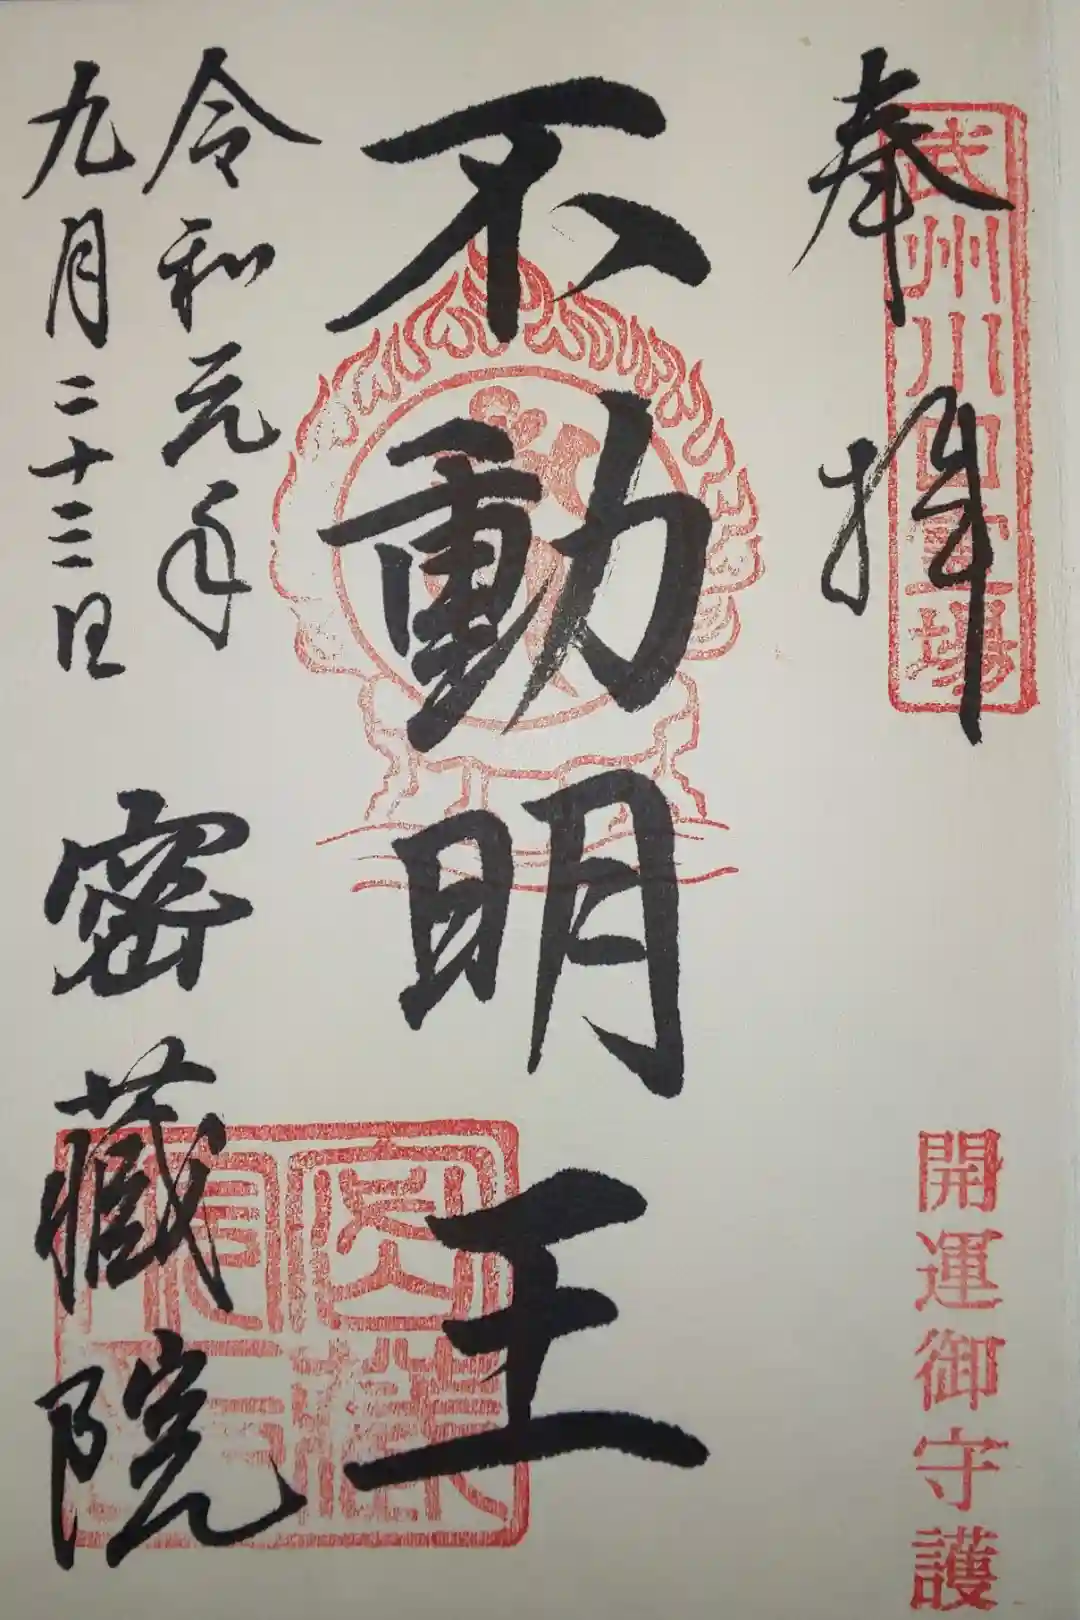 奉拝
武州川口霊場
開運御守護
不動明王
令和元年
九月二十二日
密蔵院